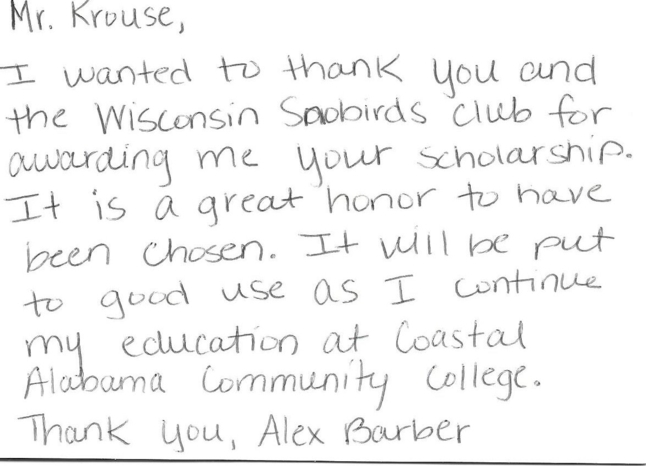 Mr. Krouse,
I wanted to thank you and
the Wisconsin Snobirds club for
awarding me your scholarship.
It is a great honor to have
been chosen. It will be put
to good use as I continue
my education at Coastal
Alabama Community College.
Thank you, Alex Barber